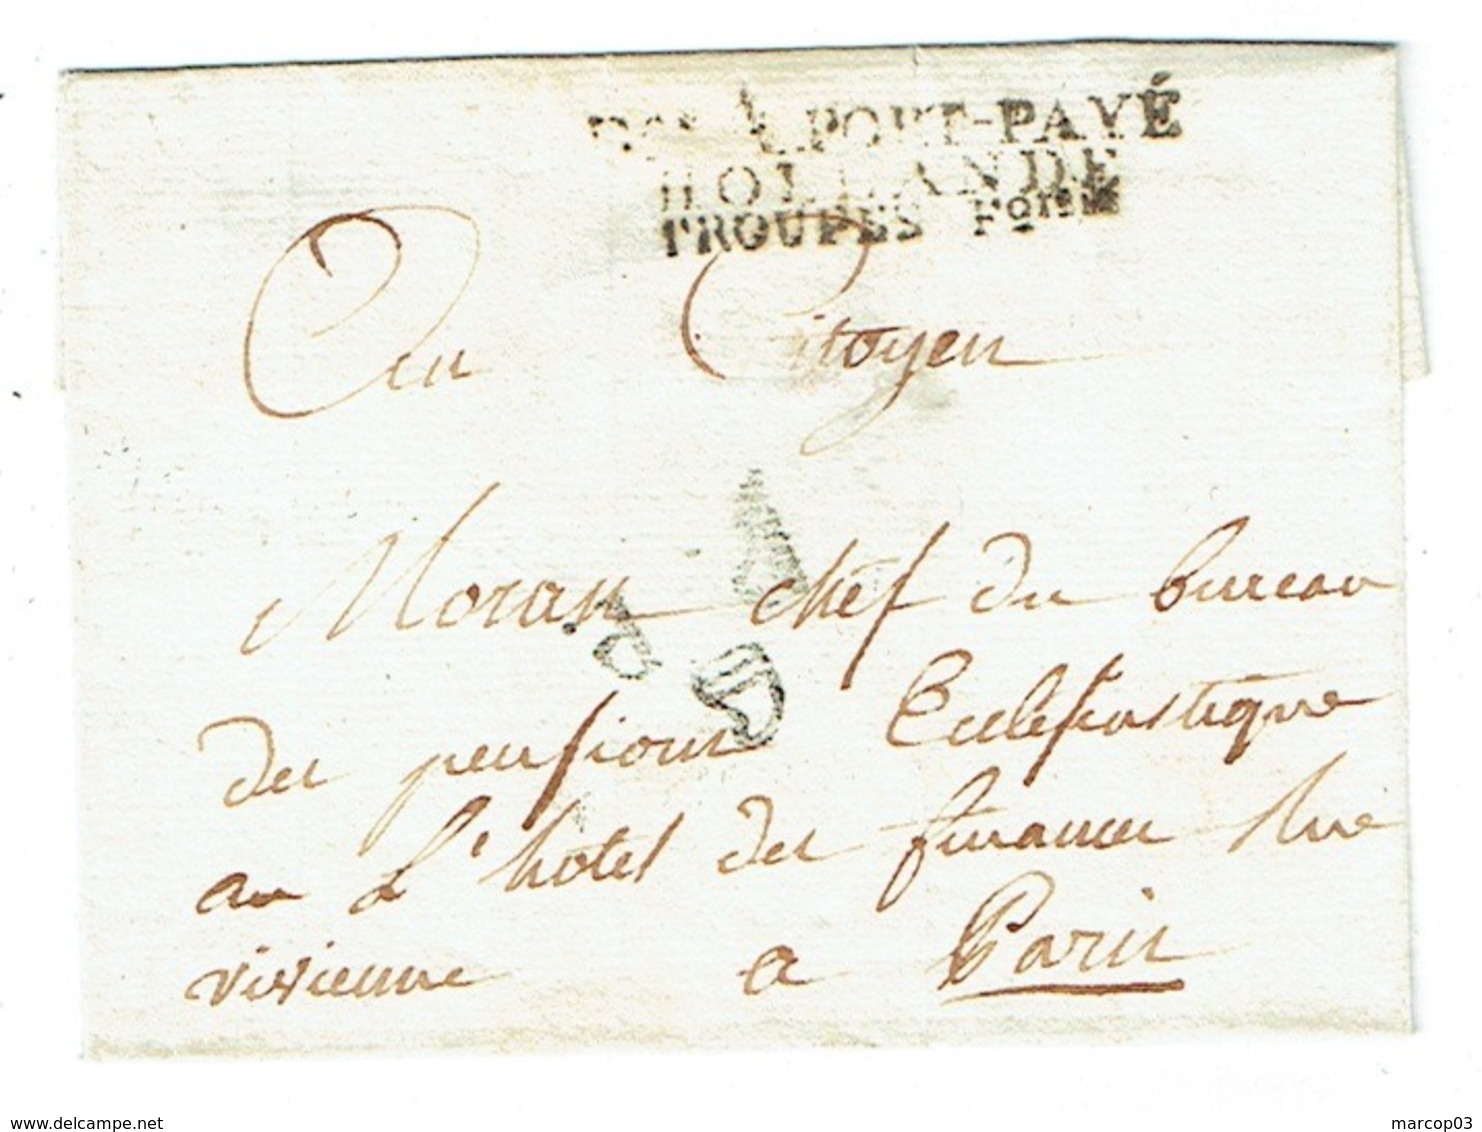 No. A. PORT-PAYÉ
HOLLANDE
TROUPES F.ques
Au Citoyen
Moran chef du bureau
P P
des pensions Ecclesiastique
au L'hôtel des finances Rue
vivienne a Paris
marcop03